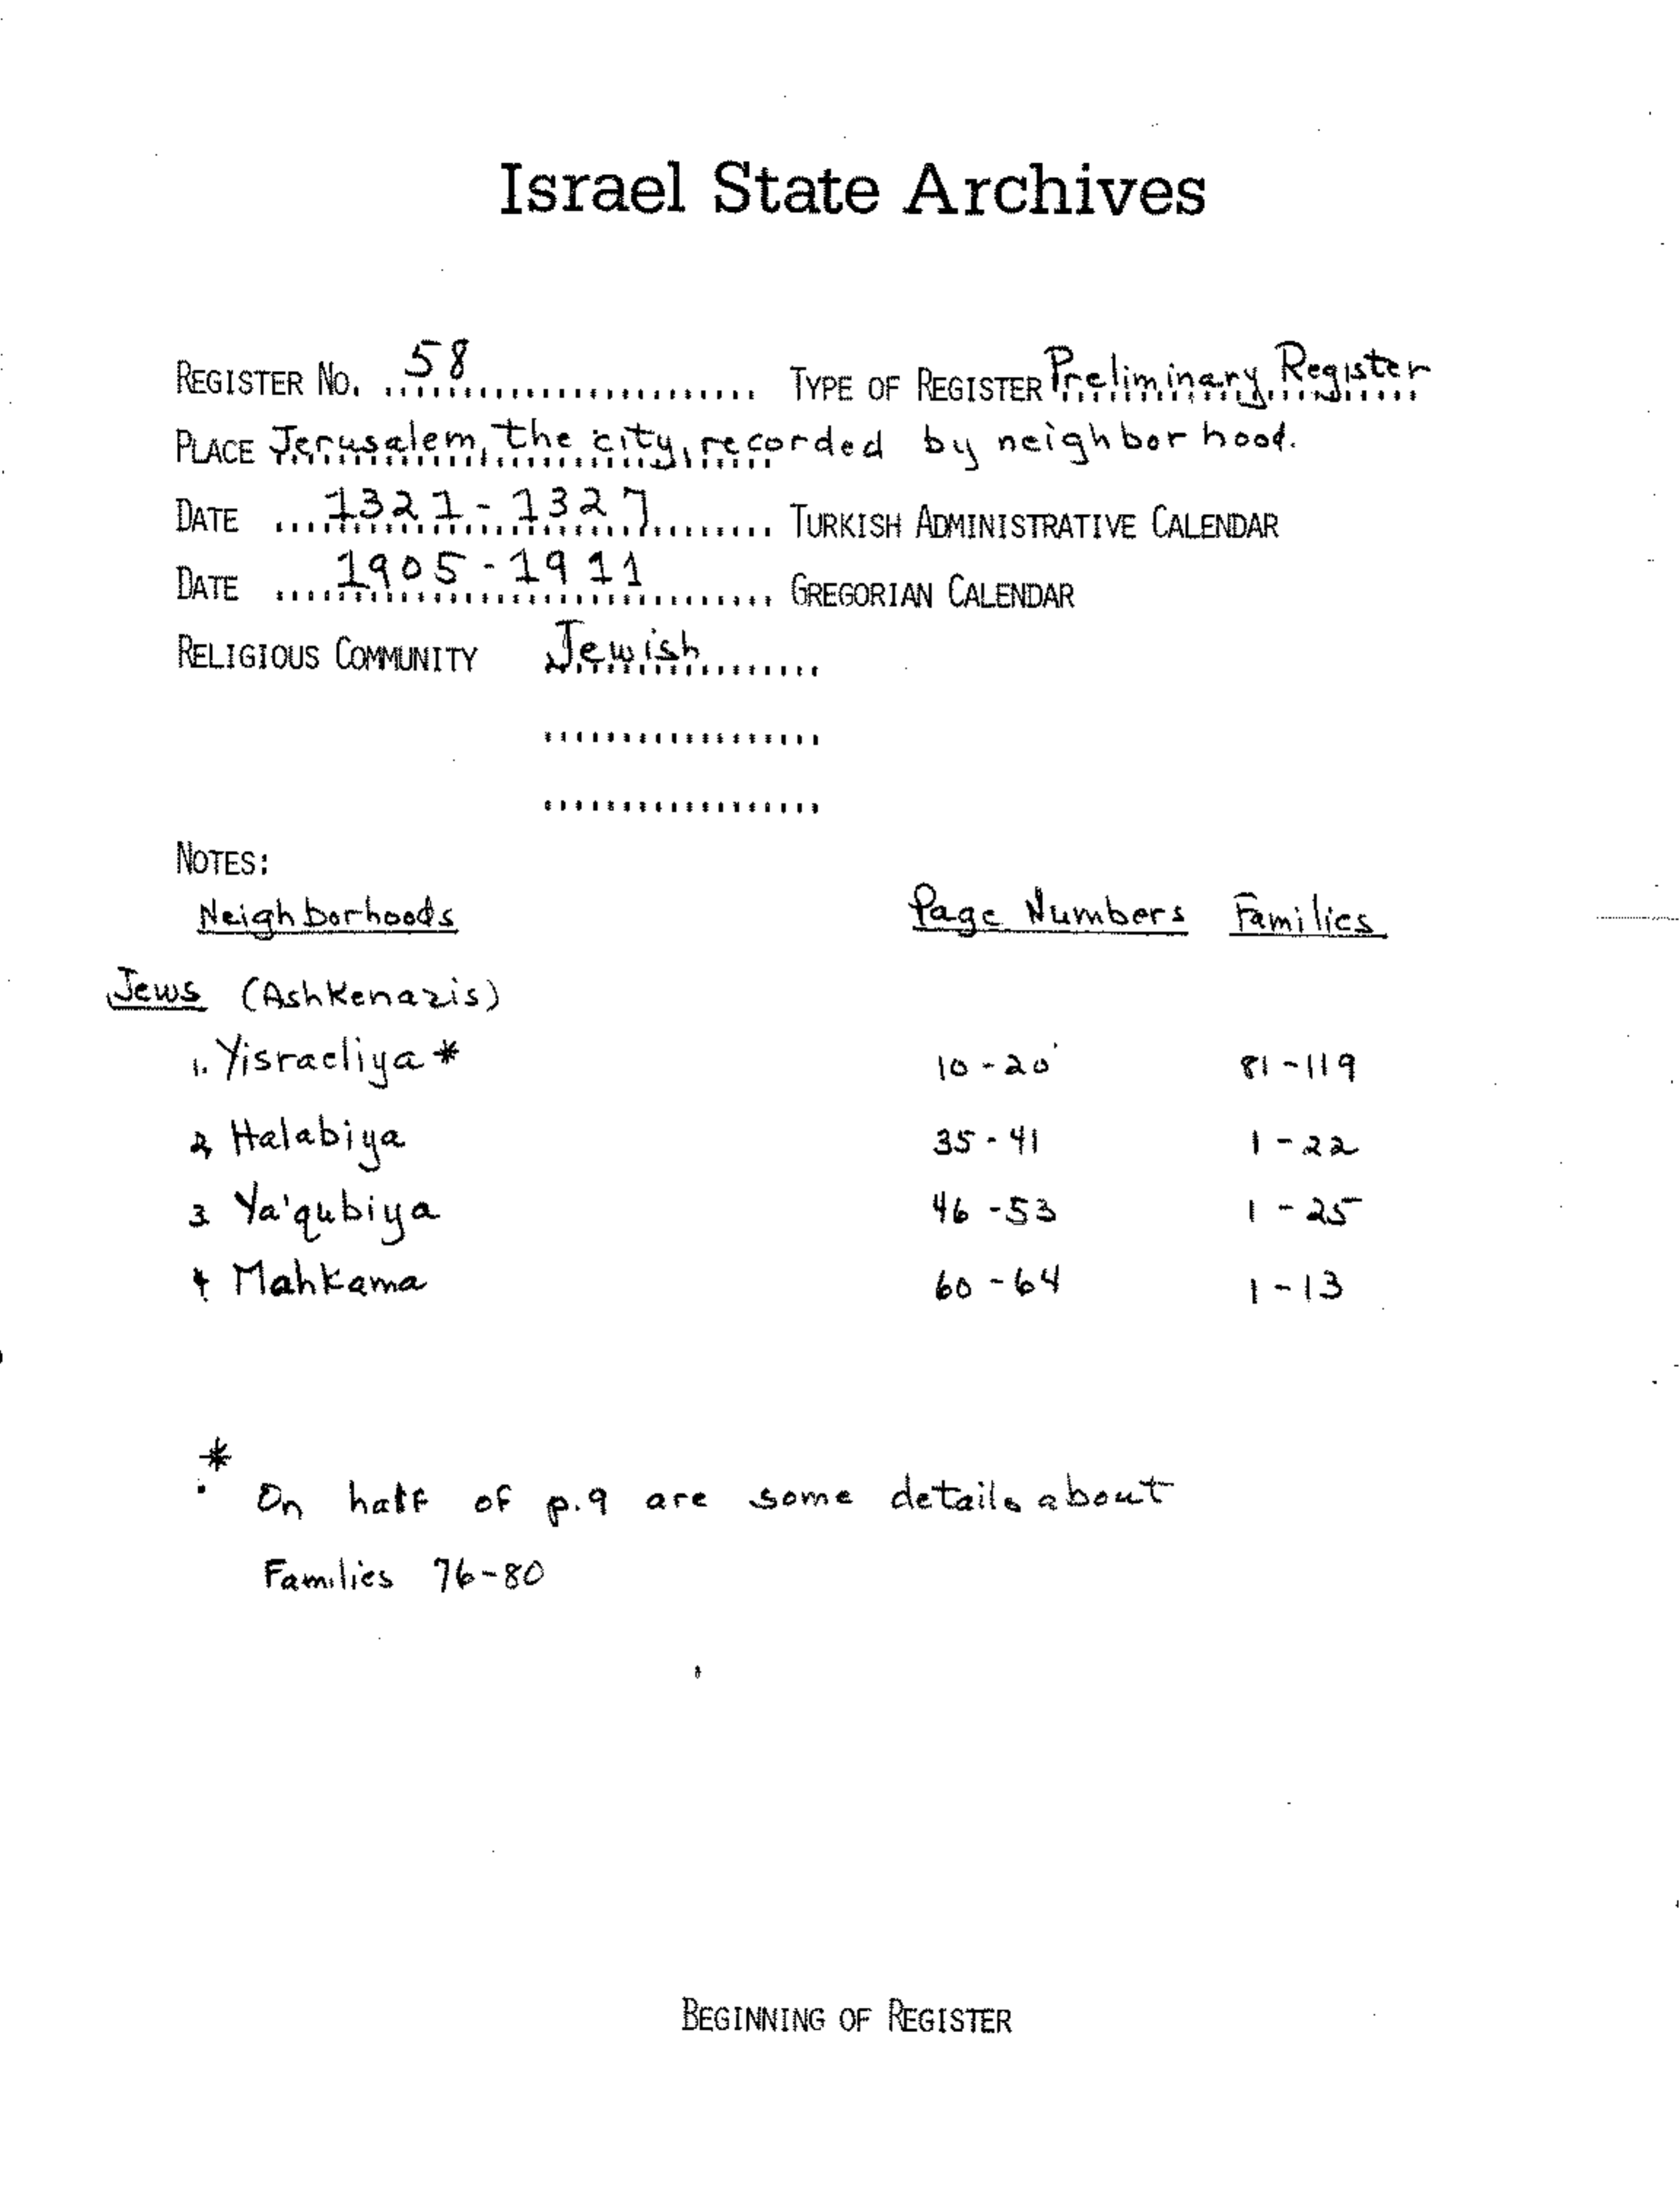 Israel State Archives
REGISTER No. 58 TYPE OF REGISTER Preliminary Register
PLACE Jerusalem, the city, recorded by neighborhood.
DATE 1321-1327 TURKISH ADMINISTRATIVE CALENDAR
DATE 1905-1911 GREGORIAN CALENDAR
RELIGIOUS COMMUNITY Jewish
NOTES:
Neighborhoods Page Numbers Families
Jews (Ashkenazis)
1. Yisraeliya * 10-20 81-119
2, Halabiya 35-41 1-22
3 Ya'qubiya 46-53 1-25
4 Mahkama 60-64 1-13
* On half of p.9 are some details about
Families 76-80
BEGINNING OF REGISTER